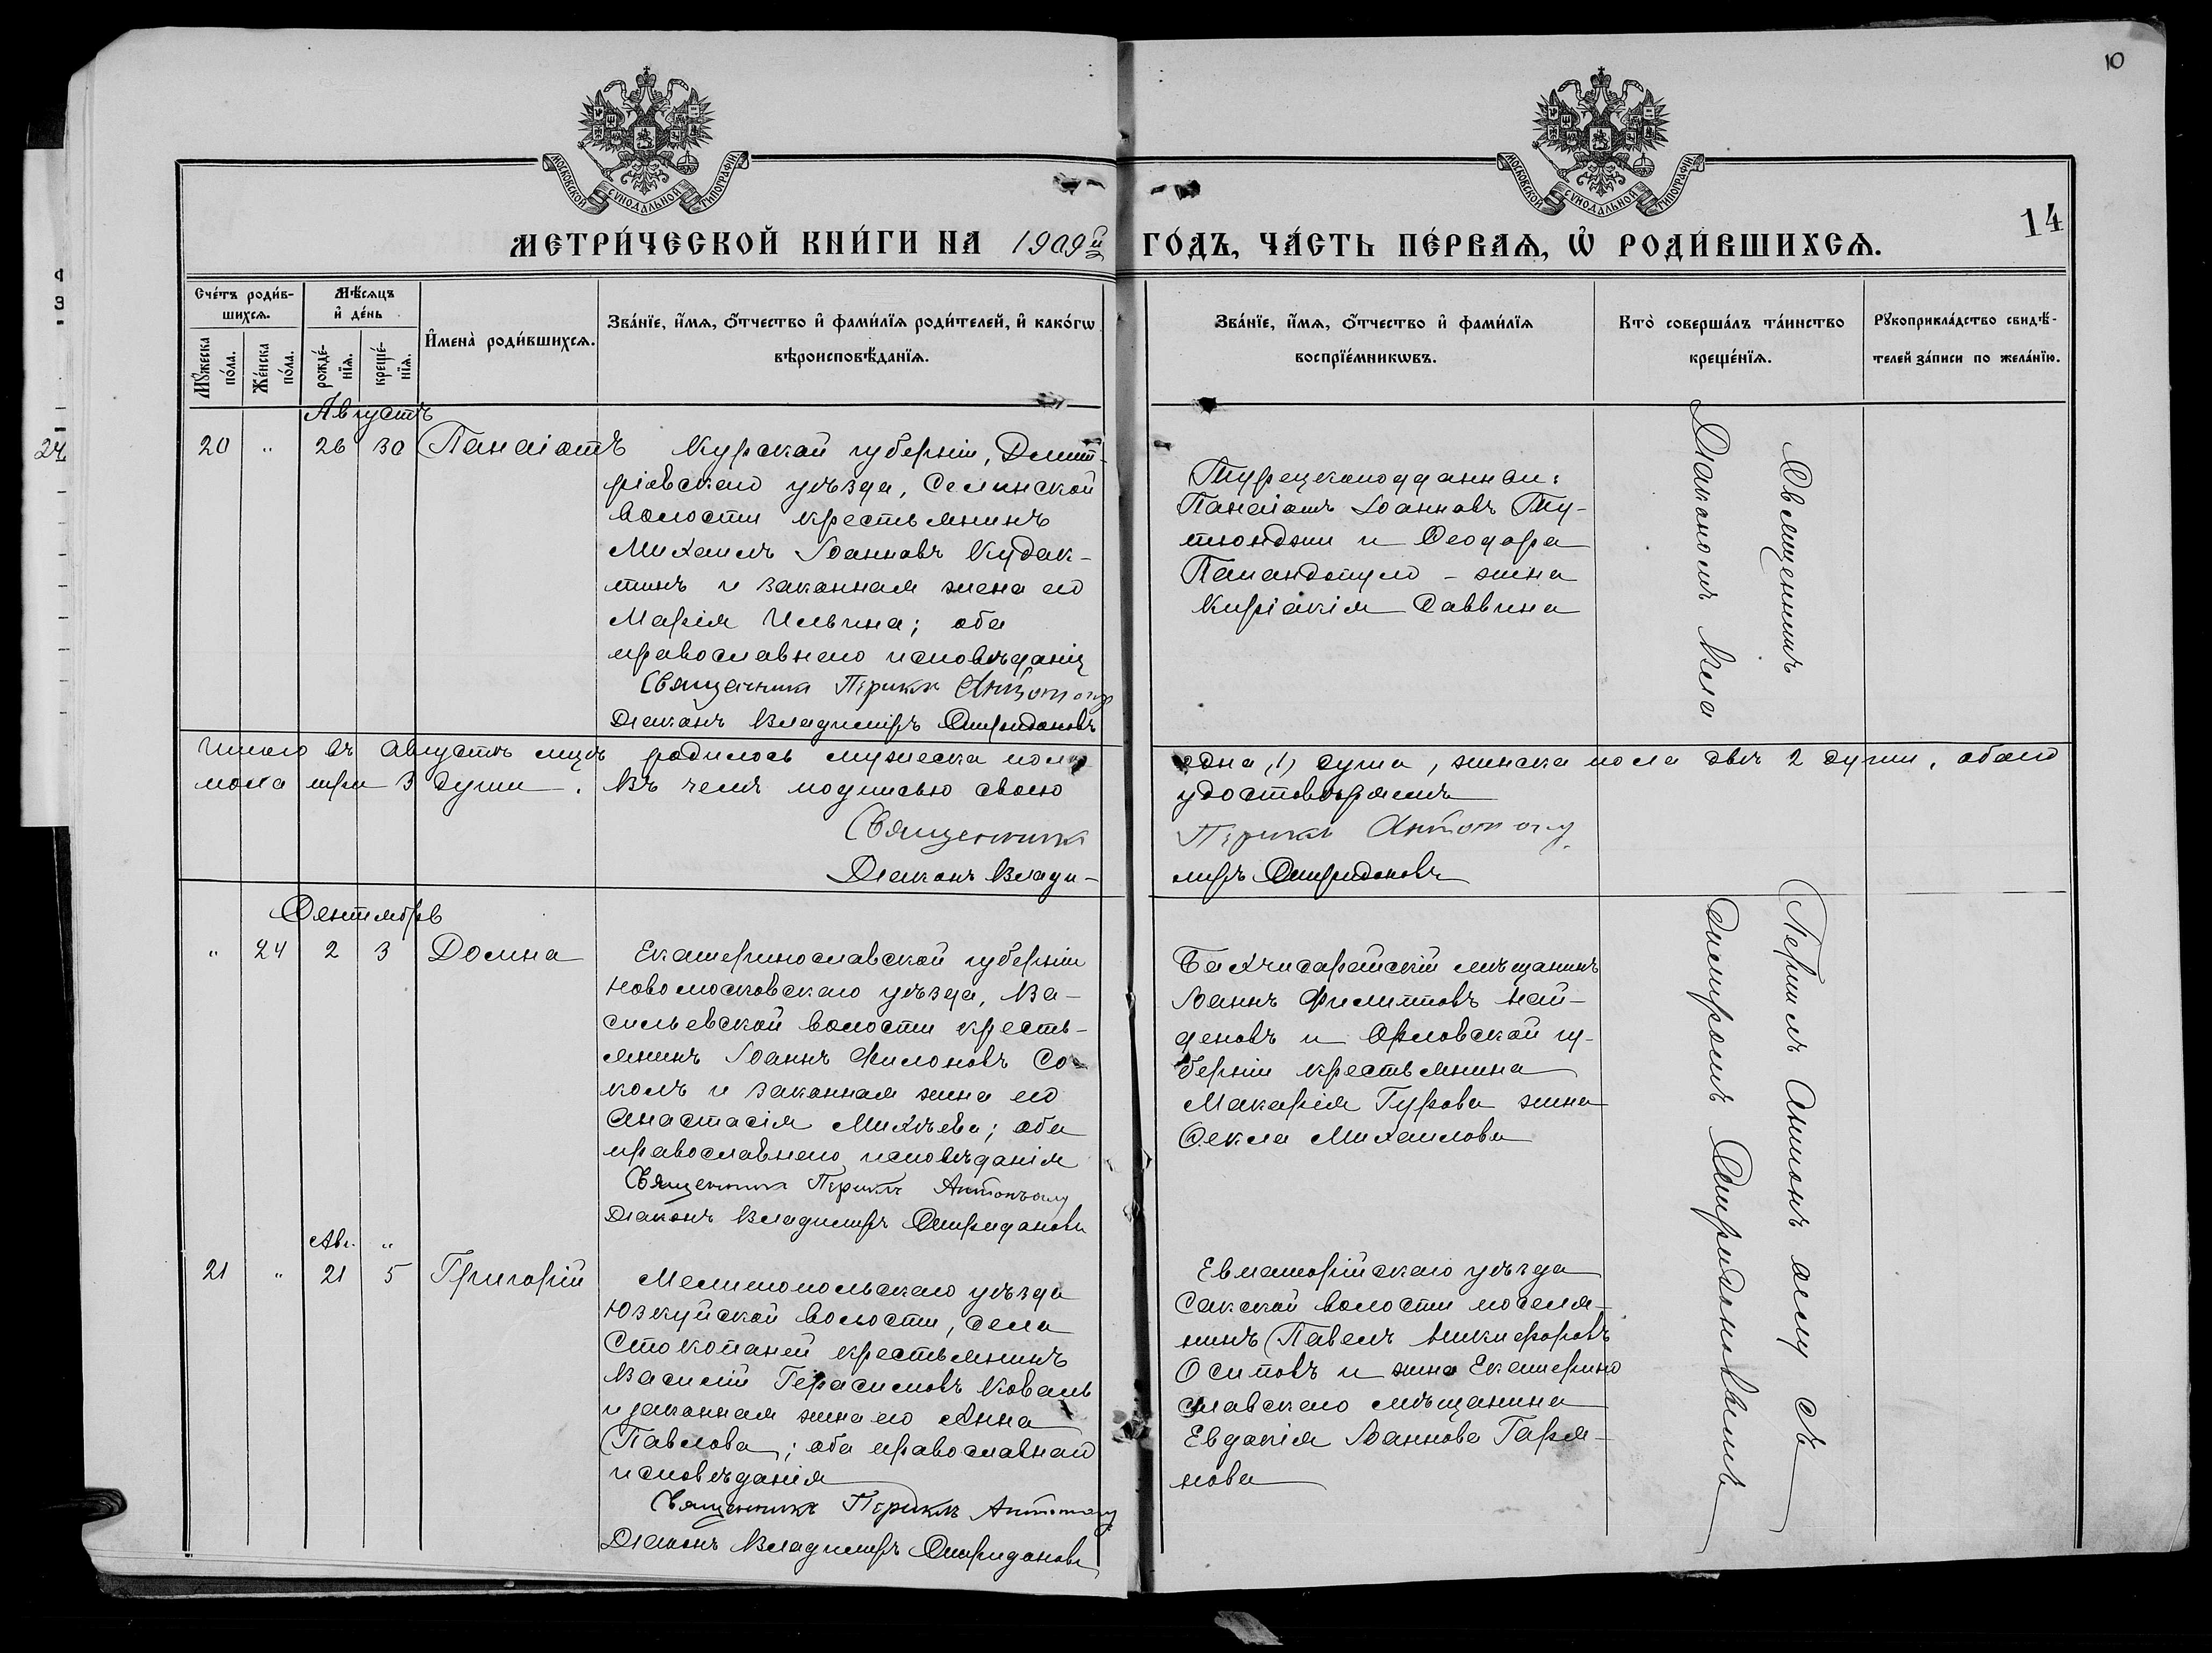 10
14
МОСКОВСКОЙ СУНОДАЛЬНОЙ ТИПОГРАФІИ
МОСКОВСКОЙ СУНОДАЛЬНОЙ ТИПОГРАФІИ
МЕТРИ́ЧЕСКОЙ КНИ́ГИ НА 1909й ГО́ДЪ, ЧА́СТЬ ПЕ́РВАѦ, Ѡ҆ РОДИ́ВШИХСѦ.
Сче́тъ роди́в-
шихсѧ.
Мꙋ́жеска
по́ла.
Же́нска
по́ла.
Мѣ́сѧцъ
и҆ де́нь
рожде́-
нїѧ.
креще́-
нїѧ.
И҆мена̀ роди́вшихсѧ.
Зва́нїе, и҆́мѧ, ѻ҆́тчество и҆ фами́лїѧ роди́телей, и҆ како́гѡ
вѣроисповѣ́данїѧ.
Зва́нїе, и҆́мѧ, ѻ҆́тчество и҆ фами́лїѧ
воспрїе́мникѡвъ.
Кто̀ соверша́лъ та́инство
креще́нїѧ.
Рꙋкоприкла́дство свидѣ́-
телей за́писи по жела́нїю.
24
Августъ
20 " 26 30 Панаіотъ
Курской губерніи, Дмит-
ріевскаго уѣзда, Селинской
волости крестьянинъ
Михаилъ Іоанновъ Кудак-
тинъ и законная жена его
Марія Ильина; оба
православнаго исповѣданія
Священникъ Периклъ Антоноглу
Діаконъ Владиміръ Спиридоновъ
Турецкоподданные:
Панаіотъ Іоанновъ Ту-
тюнджи и Ѳеодора
Папандопуло - жена
Киріакія Саввина
Священникъ
Діакономъ Вла
Итого въ Августѣ мцѣ родилось мужеска пола одна, 1, душа, женска пола двѣ 2 души, обоего
пола три 3 души. Въ чемъ подписью своею удостовѣряемъ
Священникъ Периклъ Антоноглу
Діаконъ Влади-
міръ Спиридоновъ
Сентябрь
" 24 2 3 Домна
Екатеринославской губерніи
Новомосковскаго уѣзда, Ва-
сильевской волости кресть-
янинъ Іоаннъ Филоновъ Со-
колъ и законная жена его
Анастасія Михѣева; оба
православнаго исповѣданія
Священникъ Периклъ Антоноглу
Діаконъ Владиміръ Спиридоновъ
Бахчисарайскій мѣщанинъ
Іоаннъ Филипповъ Най-
деновъ и Орловской гу-
берніи крестьянина
Макарія Гурова жена
Ѳекла Михаилова
Периклъ Антоноглу съ
диміромъ Спиридоновымъ
Авг. "
21 " 21 5 Григорій
Мелитопольскаго уѣзда
Юзкуйской волости, села
Стокопаней крестьянинъ
Василій Герасимовъ Коваль
и законная жена его Анна
Павлова; оба православнаго
исповѣданія
Священникъ Периклъ Антоноглу
Діаконъ Владиміръ Спиридоновъ
Евпаторійскаго уѣзда
Сакской волости поселя-
нинъ Павелъ Никифоровъ
Осиповъ и жена Екатерино
славскаго мѣщанина
Евдокія Іоаннова Гаря-
нова